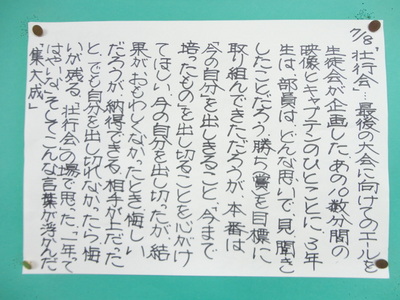 7/8 "壮行会"…最後の大会に向けてのエールを
生徒会が企画した。あの10数分間の
映像とキャプテンのひとことに、3年
生は、部員は、どんな思いで、見、聞き
したことだろう。勝ち、賞を目標に
取り組んできただろうが、本番は
「今の自分を出しきること、今まで
培ったもの」を出し切ることを心がけ
てほしい。今の自分を出し切ったが、結
果がおもわしくなかったとき悔しい
だろうが、納得できる。相手が上だった
と。でも自分を出し切れなかったら、悔
いが残る。壮行会の場で思った。一年っ
てはやいな。そしてこんな言葉が浮かんだ
「集大成」